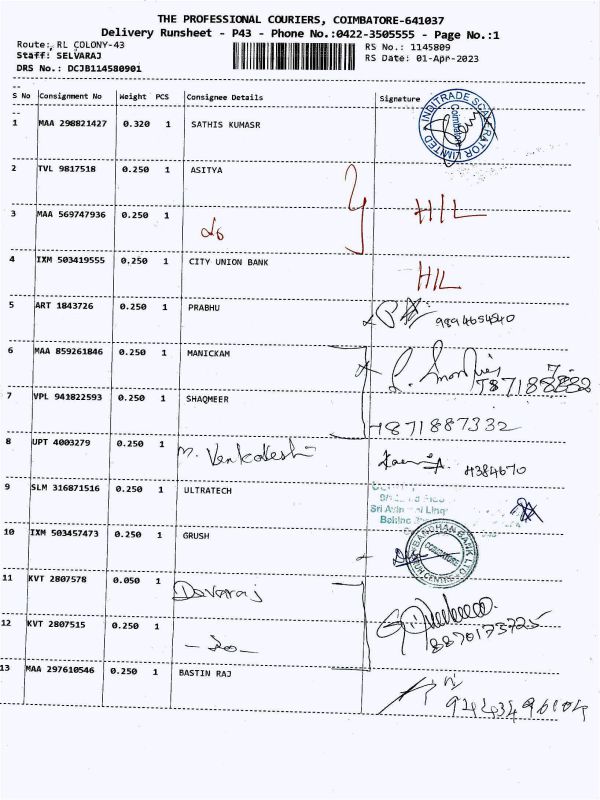 THE PROFESSIONAL COURIERS, COIMBATORE-641037
Delivery Runsheet - P43 - Phone No.:0422-3505555 - Page No.:1
Route: RL COLONY-43 RS No.: 1145809
Staff: SELVARAJ RS Date: 01-Apr-2023
DRS No.: DCJB114580901
S No Consignment No Weight PCS Consignee Details Signature
1 MAA 298821427 0.320 1 SATHIS KUMASR
INDITRADE SCALERATOR LIMITED Coimbatore
2 TVL 9817518 0.250 1 ASITYA
3 MAA 569747936 0.250 1 H/L
4 IXM 503419555 0.250 1 CITY UNION BANK H/L
5 ART 1843726 0.250 1 PRABHU 9894654540
6 MAA 859261846 0.250 1 MANICKAM
7 VPL 941822593 0.250 1 SHAQMEER
8 UPT 4003279 0.250 1 M. Venkatesh
9 SLM 316871516 0.250 1 ULTRATECH
10 IXM 503457473 0.250 1 GRUSH
BANDHAN BANK LTD COIMBATORE
11 KVT 2807578 0.050 1 Devaraj
12 KVT 2807515 0.250 1 8870173725
13 MAA 297610546 0.250 1 BASTIN RAJ